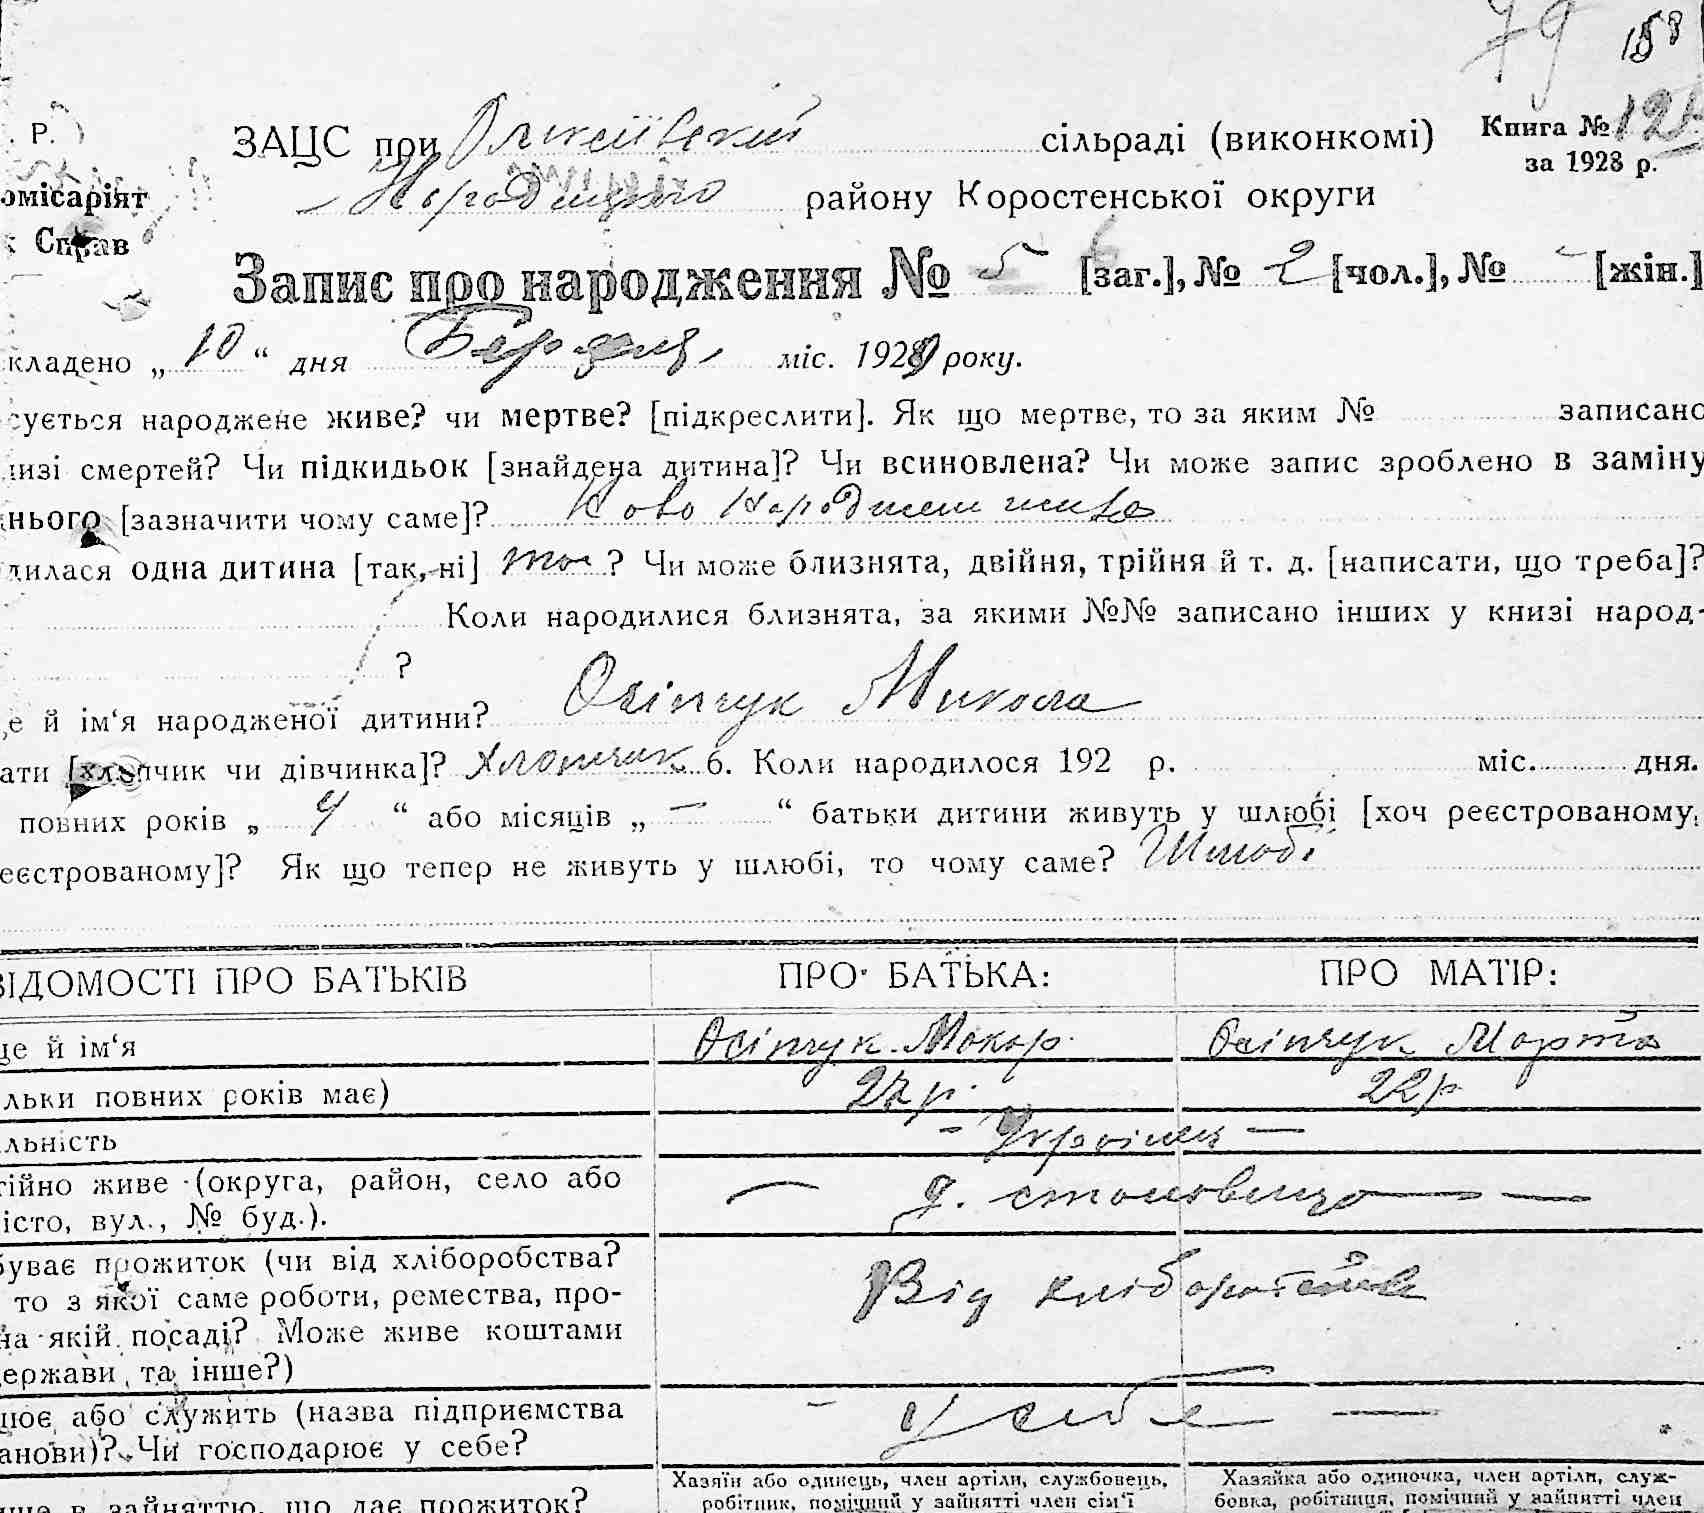 79 158
. Р. ЗАЦС при Олексіївській сільраді (виконкомі) Книга № 121
за 1928 р.
омісаріят Народицького району Коростенської округи
Справ
Запис про народження № 5 [заг.], № 2 [чол.], № - [жін.]
кладено „ 10 “ дня Березня міс. 1929 року.
сується народжене живе? чи мертве? [підкреслити]. Як що мертве, то за яким № записано
изі смертей? Чи підкидьок [знайдена дитина]? Чи всиновлена? Чи може запис зроблено в заміну
нього [зазначити чому саме]? Ново народжене живе
дилася одна дитина [так, ні] так ? Чи може близнята, двійня, трійня й т. д. [написати, що треба]?
Коли народилися близнята, за якими №№ записано інших у книзі народ-
?
е й ім‘я народженої дитини? Осіпчук Микола
ати [хлопчик чи дівчинка]? Хлопчик 6. Коли народилося 192 р. міс. дня.
повних років „ 4 “ або місяців „ — “ батьки дитини живуть у шлюбі [хоч реєстрованому,
еєстрованому]? Як що тепер не живуть у шлюбі, то чому саме? Шлюбі
ВІДОМОСТІ ПРО БАТЬКІВ ПРО БАТЬКА: ПРО МАТІР:
ще й ім‘я Осіпчук Мокар. Осіпчук Марта
льки повних років має) 27 р. 22 р
льність - Українці —
тійно живе (округа, район, село або
істо, вул., № буд.). — д. —
буває прожиток (чи від хліборобства?
то з якої саме роботи, ремества, про-
на якій посаді? Може живе коштами
держави та інше?) Від хліборобства
цює або служить (назва підприємства
анови)? Чи господарює у себе? - У себе —
Хазяїн або одинець, член артіли, службовець,
робітник, помічний у зайнятті член сім‘ї
Хазяйка або одиночка, член артіли, служ-
бовка, робітниця, помічний у зайнятті член
ище в зайняттю, що дає прожиток?